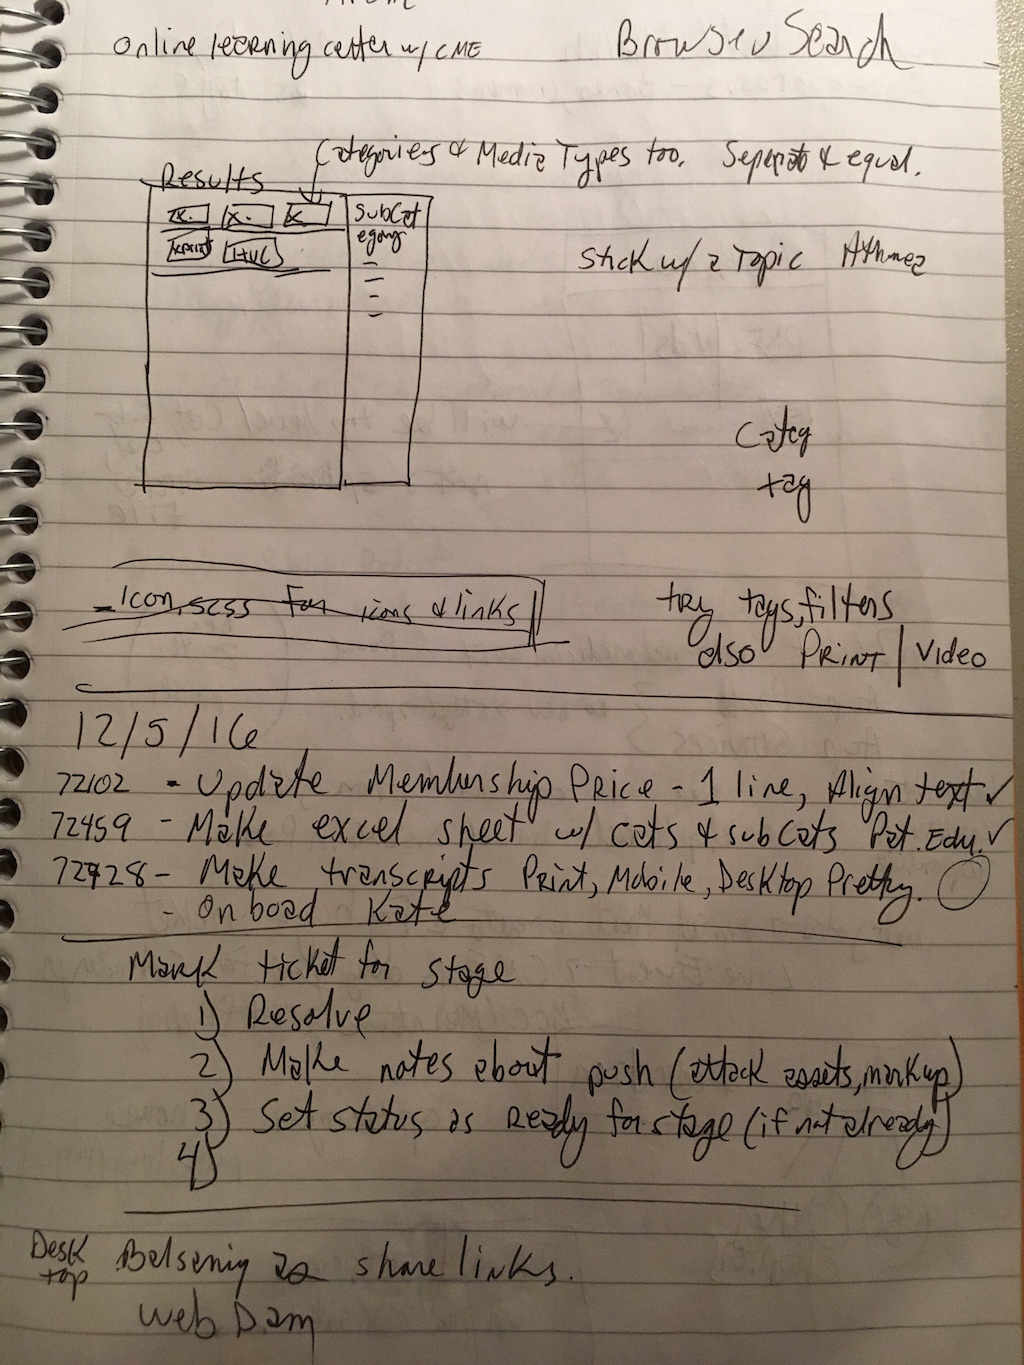 Online learning center w/ CME
Browse v Search
Categories & Media Types too. Seperate & equal.
Results
x. x. x
SubCat
egory
Stick w/ a Topic Athmea
Categ
tag
Icon.scss for icons & links
try tags, filters
also Print | Video
12/5/16
72102 - Update Membership Price - 1 line, Align text ✓
72459 - Make excel sheet w/ cats & subcats Pat. Edu. ✓
72928 - Make transcripts Print, Mobile, Desktop Pretty.
- On boad Kate
Mark ticket for stage
1) Resolve
2) Make notes about push (attack assets, markup)
3) Set status as Ready for stage (if not already)
4)
Desk
top
share links.
Web Dam